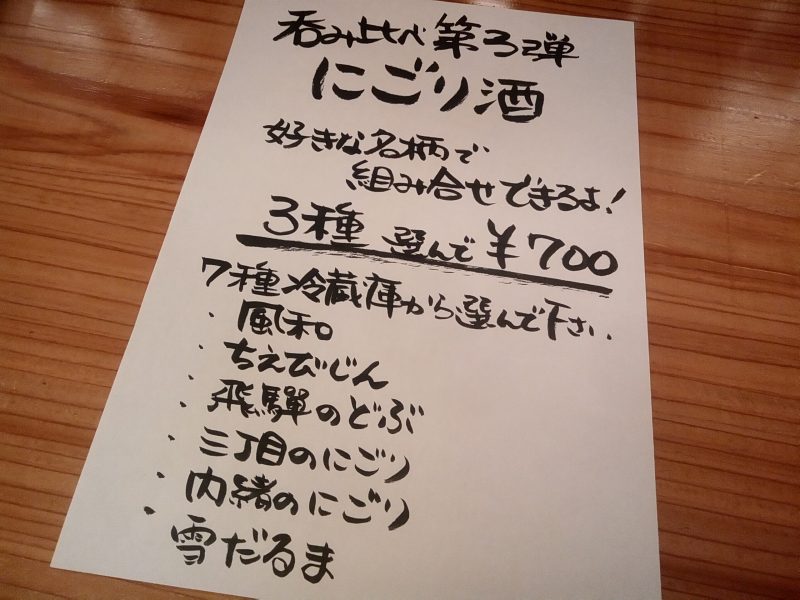 呑み比べ 第3弾
にごり酒
好きな名柄で
組み合せできるよ!
3種 選んで ¥700
7種冷蔵庫から選んで下さい.
・風和
・ちえびじん
・飛騨のどぶ
・三丁目のにごり
・内緒のにごり
・雪だるま